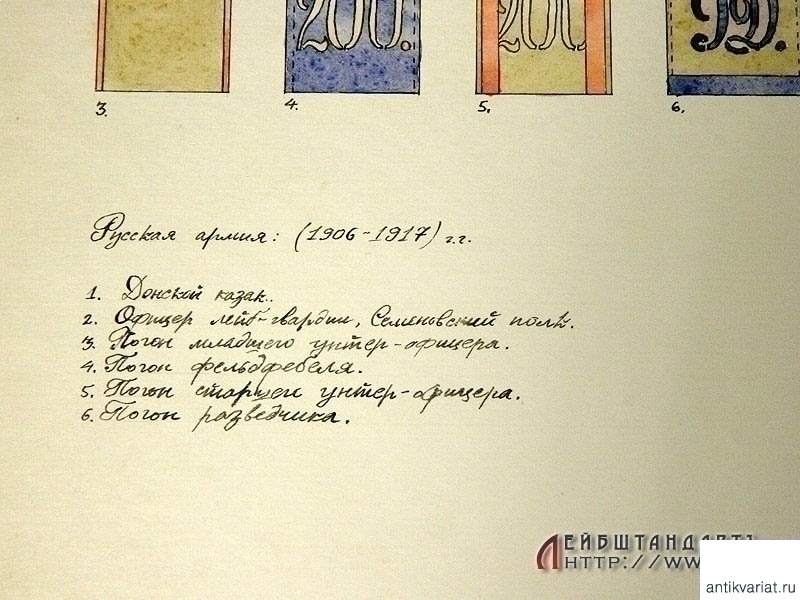 200. 200 99.
3. 4. 5. 6.
Русская армия: (1906-1917) г.г.
1. Донской казак.
2. Офицер лейб-гвардии, Семеновский полк.
3. Погон младшего унтер-офицера.
4. Погон фельдфебеля.
5. Погон старшего унтер-офицера.
6. Погон разведчика.
ЛЕЙБШТАНДАРТЪ
HTTP://WW
antikvariat.ru